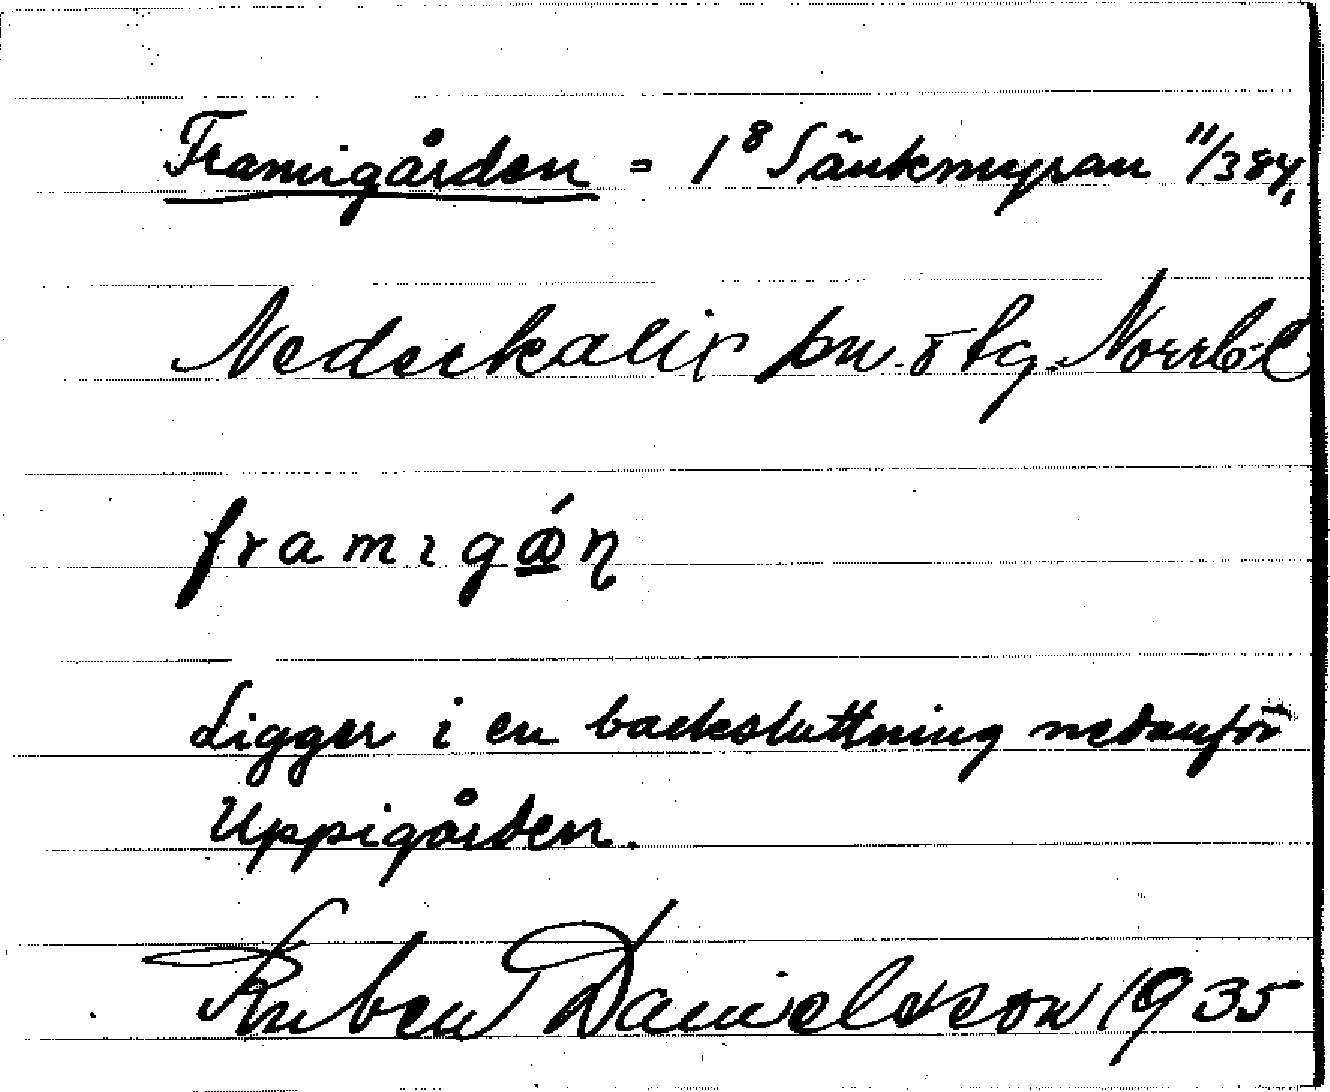 Framigården = 1⁸ Sänkmyran 11/384,
Nederkalix sn. o tg. Norrb.l.
framıgǿ̱n̥
Ligger i en backsluttning nedanför
Uppigården.
Ruben Danielsson 1935